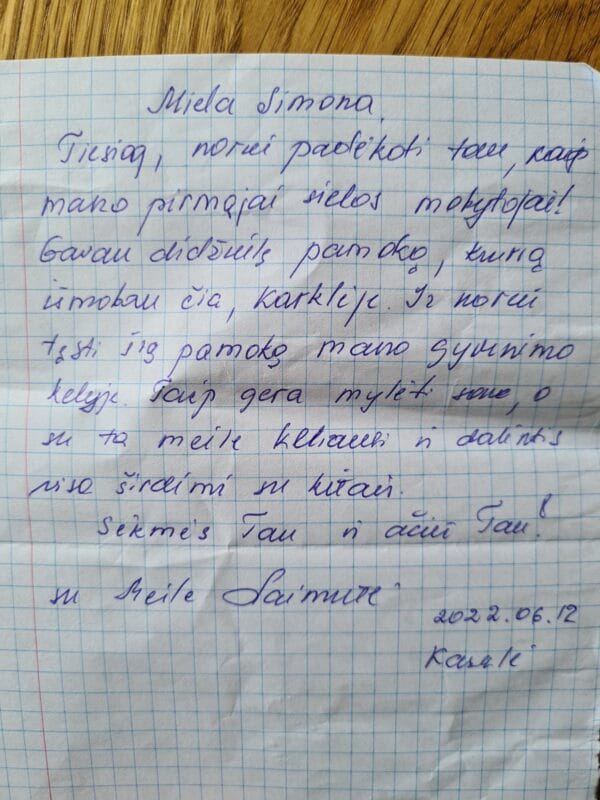 Miela Simona,
Tiesiog, noriu padėkoti tau, kaip
mano pirmajai sielos mokytojai!
Gavau didžiulę pamoką, kurią
išmokau čia, Karklėje. Ir noriu
tęsti šią pamoką mano gyvenimo
kelyje. Taip gera mylėti save, o
su ta meile keliauti ir dalintis
visa širdimi su kitais.
Sėkmės Tau ir ačiū Tau!
su Meile Laimutė
2022.06.12
Karklė